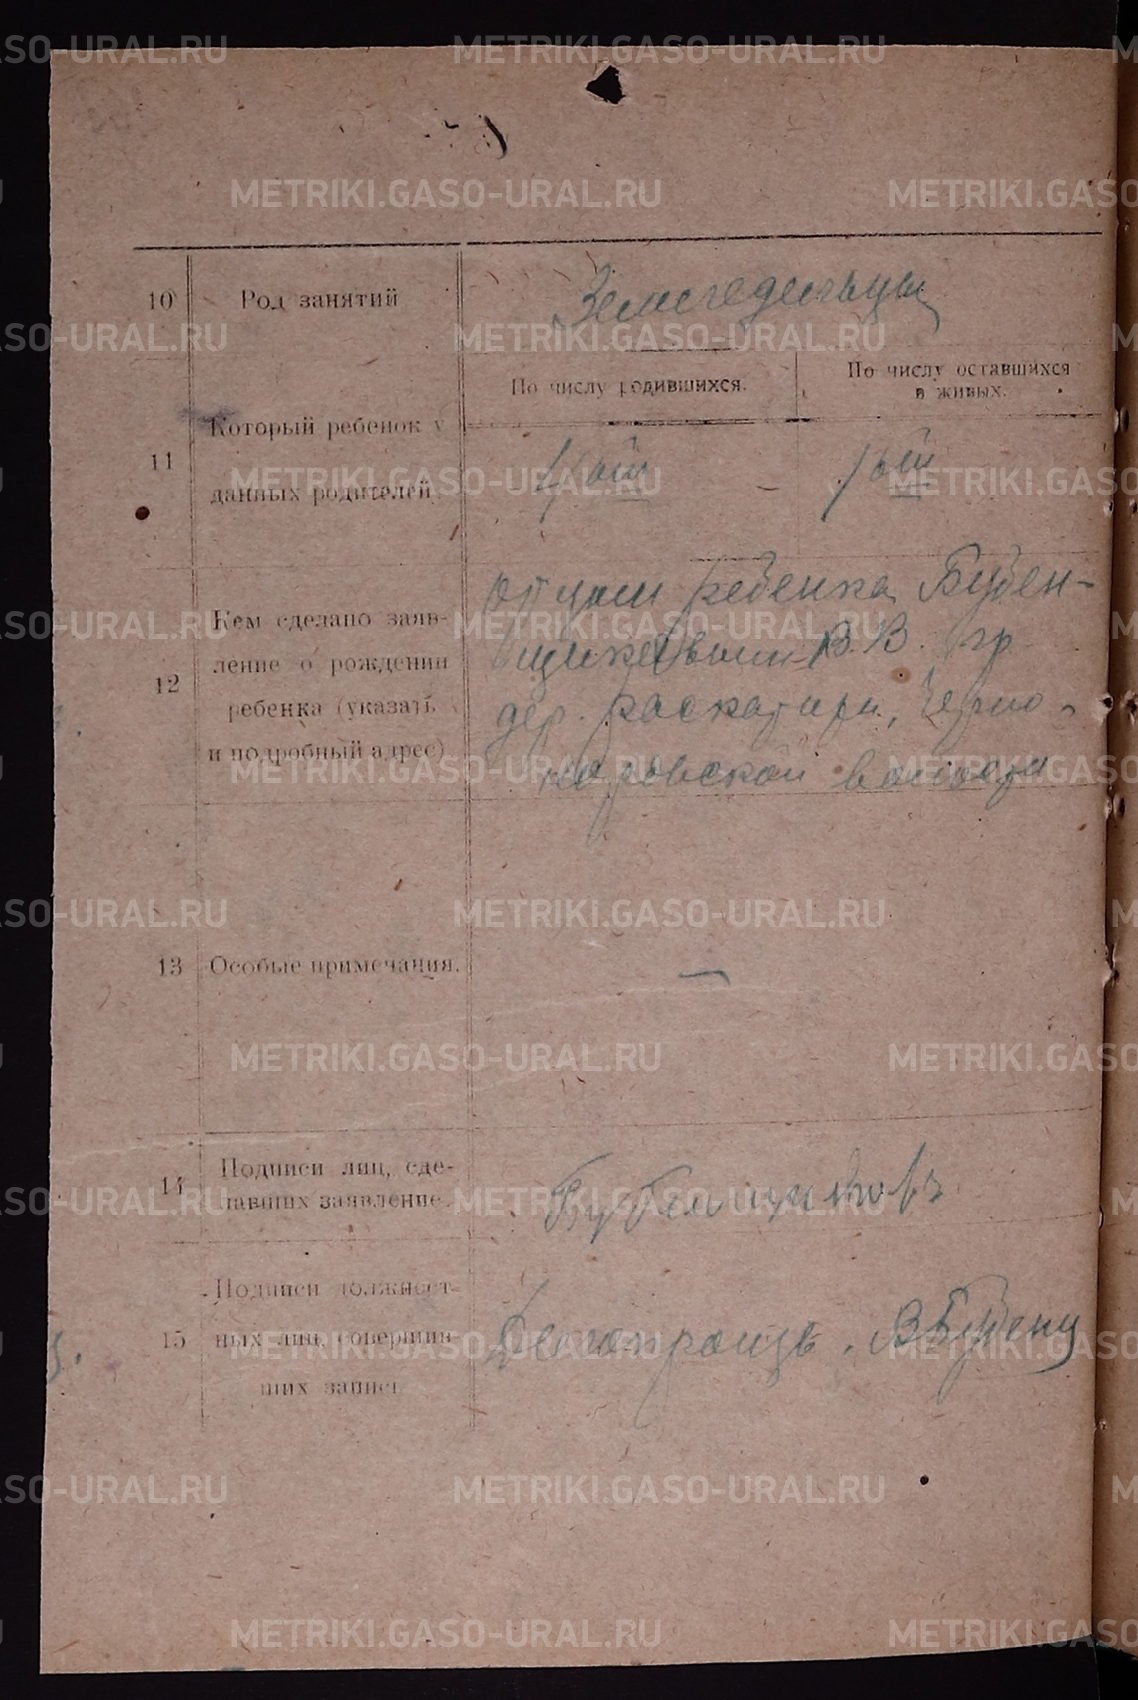 METRIKI.GASO-URAL.RU
10 Род занятий Земледельцы
По числу родившихся. По числу оставшихся
в живых.
11 Который ребенок у
данных родителей
Кем сделано заяв-
ление о рождении
12 ребенка (указать
и подробный адрес)
Отцом ребенка Бубен-
щиковым В. В. гр.
дер. Раскатихи, Черно-
коровской волости
13 Особые примечания. —
14 Подписи лиц, сде-
лавших заявление. Бубенщиковъ
Подписи должност-
15 ных лиц, совершив-
ших запись
Делопроизв. ВБубенщ